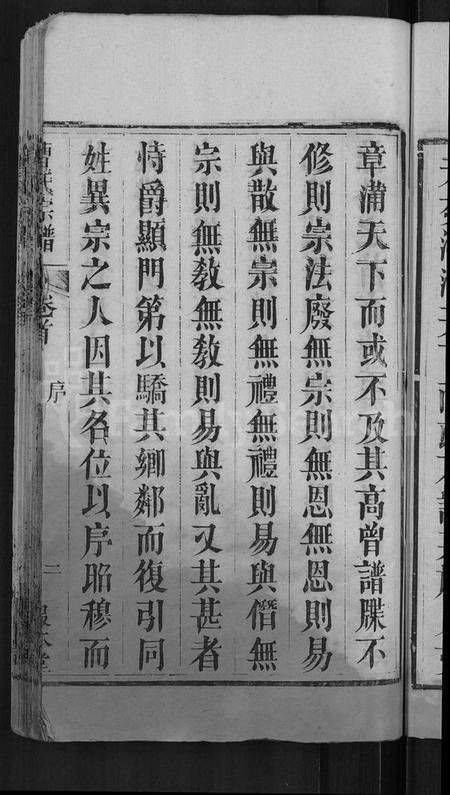 章滿天下而或不及其高曾譜牒不
修則宗法廢無宗則無恩無恩則易
與散無宗則無禮無禮則易與僭無
宗則無敎無敎則易與亂又其甚者
恃爵顯門第以驕其鄉鄰而復引同
姓異宗之人因其名位以序昭穆而
氏宗譜
卷首
序
二